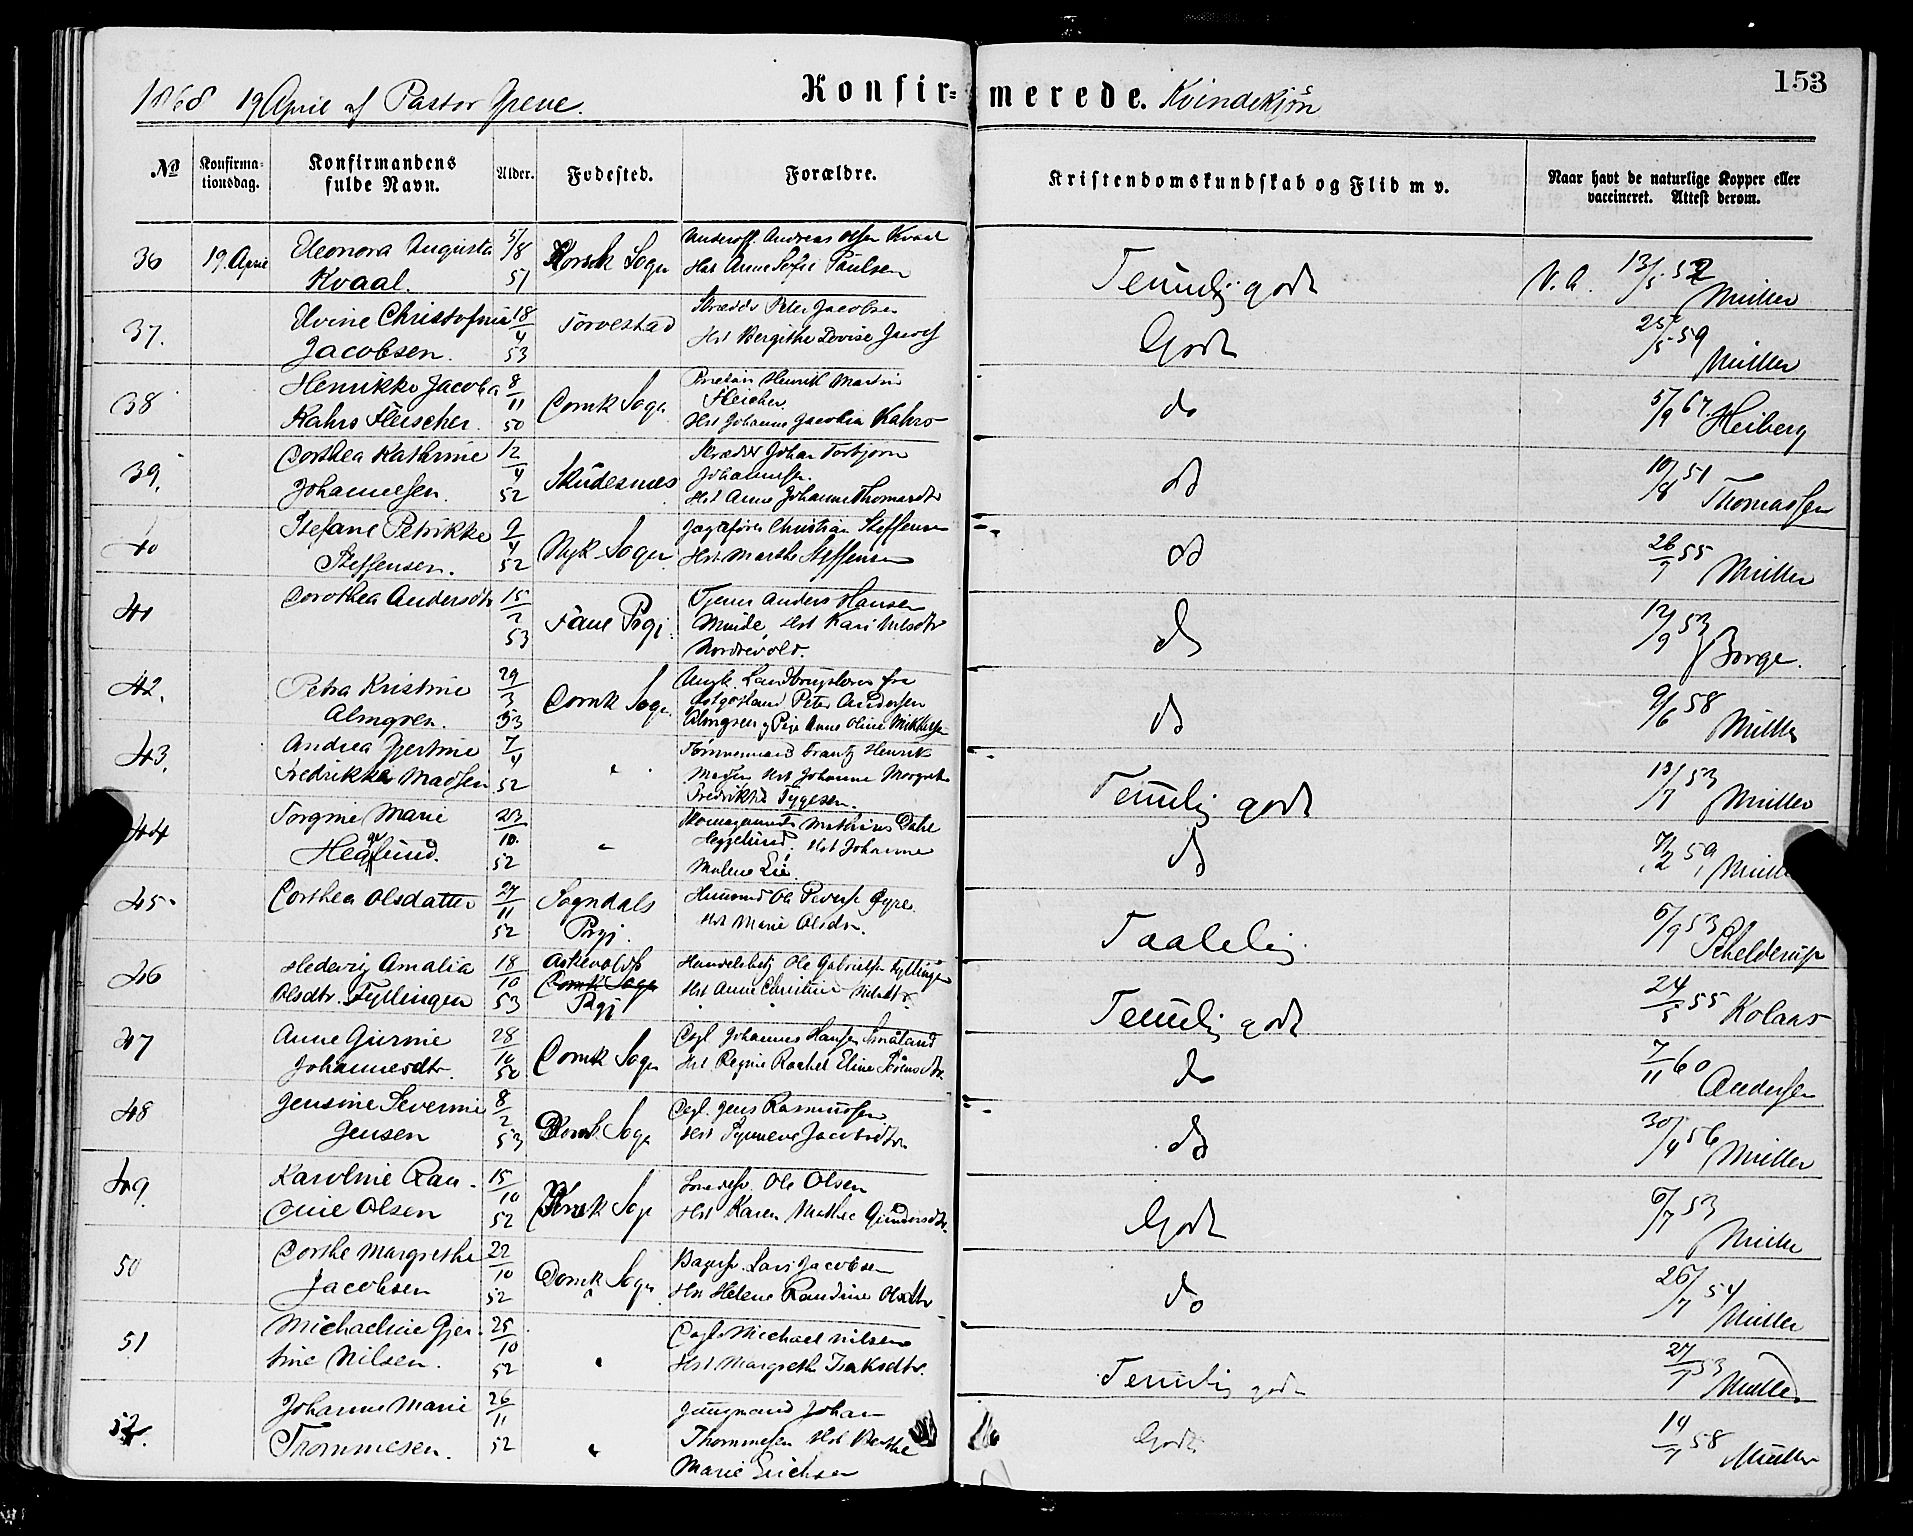 1868 19 April af Pastor Greve. Konfirmerede. Kvindekjøn 153
No Konfirmationsdag. Konfirmandens fulde Navn. Alder. Fødested. Forældre. Kristendomskundskab og Flid m v. Naar havt de naturlige Kopper eller vaccineret. Attest derom.
36 19. April Eleonora Augusta 5/8 Korsk Sogn Underoff. Andreas Olsen Kvaal
Kvaal. 51 Hst Anne Sofie Paulsen Temmelig godt V. A. 13/5 52 Müller
37. Elvine Christofine 18/4 Torvestad Skrædder Peter Jacobsen
Jacobsen. 53 Hst Bergithe Lovise Jacobs Godt 25/5 59 Müller
38 Henrikke Jacoba 8/11 Domk Sogn Henrik Martin
Kahrs Fleischer. 50 Fleischer.
Hst Johanne Jacobia Kahrs do 5/9 67 Heiberg
39. Dorthea Kathrine 12/4 Skudesnes Skrædder Johan Torbjørn
Johannesen. 52 Johannessen.
Hst Anne Johanne Thomasdtr do 10/8 51 Thomassen
40 Stefane Petrikke 9/4 Nyk Sogn Jagtfører Christian Steffensen
Steffensen. 52 Hst Marthe Steffensen do 26/9 55 Müller
41 Dorothea Andersdtr 15/2 Fane Prgj. Tjener Anders Hansen
53 Hst Kari Nilsdtr
Nordrevold. do 12/9 53 Borge.
42. Petra Kristine 29/3 Domk Sogn Ungk. Landbrugslærer fra
Almgren. 53 Østgøtland Peter Andersen
Almgren og Pige Anne Oline Mikkelsen do 9/6 58 Müller
43. Andrea Gjertine 7/4 " Tømmermand Frantz Henrik
Fredrikke Madsen 52 Madsen Hst Johanne Margrete
Fredrikke Tygesen. Temmelig godt 13/7 53 Müller
44 Torgine Marie 23/10 " Mathias Dahl
Heggelund. 52 Heggelund. Hst Johanne
Malene Lie. do 7/2 59 Müller
45. Dorthea Olsdatter 27/11 Sogndals Huusmd Ole Pedersen Øyre.
52 Prgj. Hst Marie Olsdtr. Taalelig 6/9 53 Schelderup
46 Hedevig Amalia 18/10 Askevolds Handelsbetj Ole Gabrielsen Fyllingen
Olsdtr. Fyllingen 53 Prgj Hst Anne Christine Nilsdtr. Temmelig godt 24/5 55 Kolaas
47 Anne Gurine 28/10 Domk Sogn Dagl Johannes Hansen Småland
Johannesdtr. 50 Hst Regine Rachel Eline Sørensdtr. do 7/11 60 Andersen
48 Jensine Severine 8/2 Domk Sogn Dagl. Jens Rasmussen
Jensen 53 Hst Synneve Jacobsdtr do 30/4 56 Müller
49. Karoline Ran- 15/10 Korsk Sogn Ole Olsen
dine Olsen 52 Hst Karen Mathea Gundersdtr. Godt 6/7 53 Müller
50 Dorthe Margrethe 22/10 Domk Sogn Bagersv. Lars Jacobsen
Jacobsen 52 Hst Helene Randine Olsdtr do 26/7 54 Müller
51 Michaeline Gjer- 25/10 " Dagl Michael Nilsen
tine Nilsen. 52 Hst Margrethe Isaksdtr. Temmelig godt 27/7 53 Müller
52. Johanne Marie 26/11 " Jungmand Johan
Trommesen. 52 Thommesen Hst Berthe
Marie Erichsen Godt 19/7 58 Müller